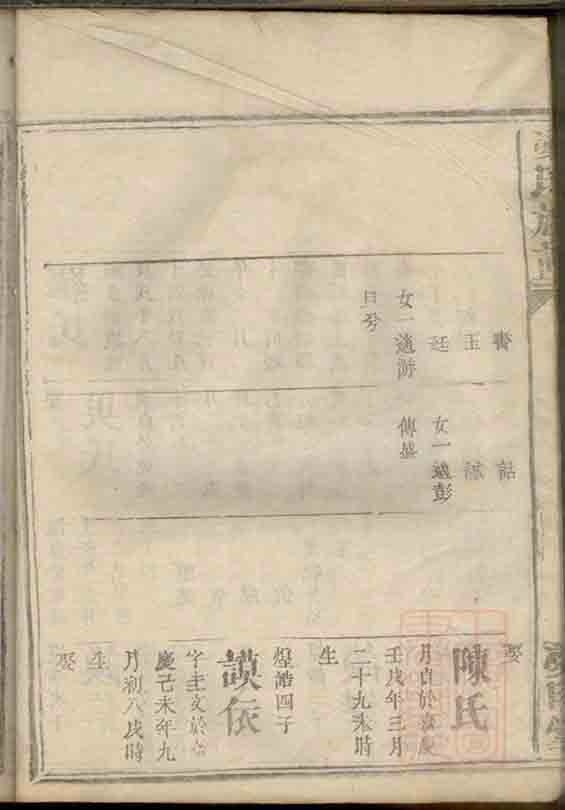 氏族譜
玉
廷
女一適謝
詰
詠
女一適彭
傳盛
娶
陳氏
月貞於嘉慶
壬戌年三月
二十九未時
生
煌誥四子
謨依
字圭文於嘉
慶己未年九
月初八戌時
生
娶